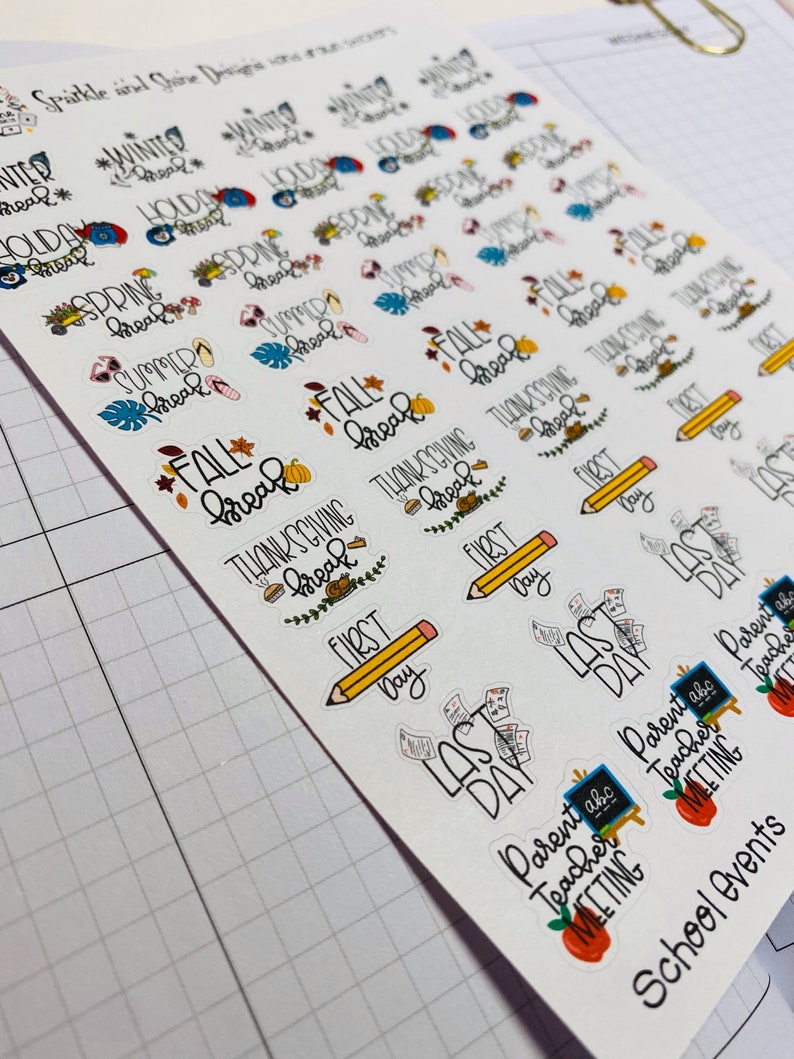 Sparkle and Shine Designs hand drawn stickers
NTER WINTER WINTER WINTER WINTER
break break break break break
HOLIDAY HOLIDAY HOLIDAY HOLIDAY HOLIDAY
break break break break break
SPRING SPRING SPRING SPRING SPRING
break break break break break
SUMMER SUMMER SUMMER SUMMER SUMMER
break break break break break
FALL FALL FALL FALL FALL
break break break break break
THANKSGIVING THANKSGIVING THANKSGIVING THANKSGIVING THANKSGIVING
break break break break break
FIRST FIRST FIRST FIRST FIRST
Day Day Day Day
LAST LAST LAST LAST
DAY DAY DAY
abc abc abc
Parent Parent Parent
Teacher Teacher Teacher
MEETING MEETING MEETING
School events